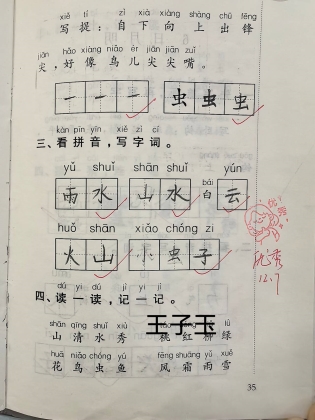 xiě tí zì xià xiàng shàng chū fēng
写提：自下向上出锋
jiān hǎo xiàng niǎo ér jiān jiān zuǐ
尖，好像鸟儿尖尖嘴。
一 一 一 虫 虫 虫
kàn pīn yīn xiě zì cí
三、看拼音，写字词。
yǔ shuǐ shān shuǐ yún
雨 水 山 水 bái 白 云
huǒ shān xiǎo chóng zi
火 山 小 虫 子
优秀
12.7
dú yi dú jì yi jì
四、读一读，记一记。
shān qīng shuǐ xiù lǜ
山 清 水 秀 桃 红 柳 绿
王子玉
huā niǎo chóng yú fēng shuāng yǔ xuě
花 鸟 虫 鱼 风 霜 雨 雪
35